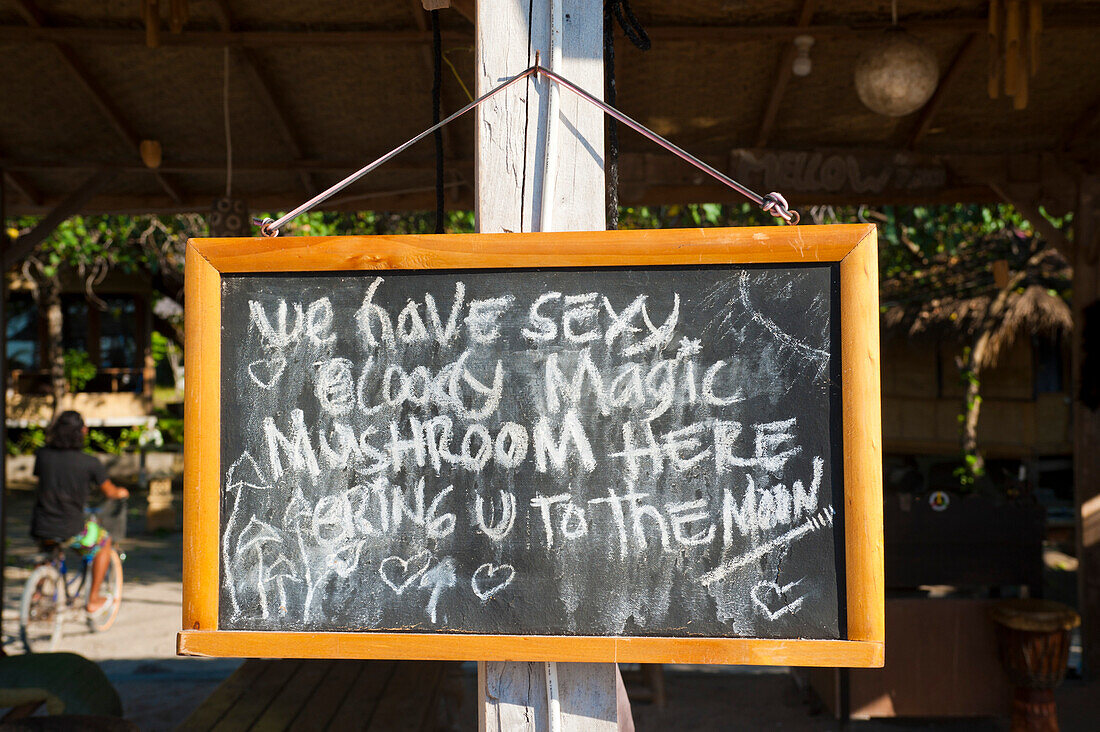 MELLOW
we have sexy
Bloody Magic
Mushroom Here
Bring u to the Moon